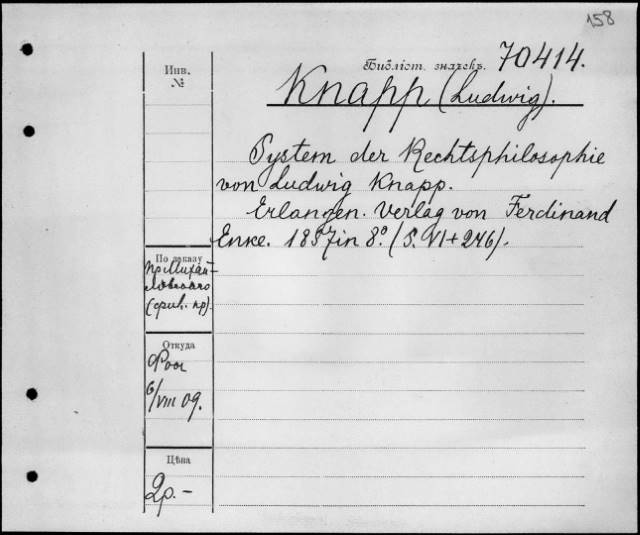 158
Инв.
№
Библіот. значекъ. 70414.
Knapp (Ludwig).
System der Rechtsphilosophie
von Ludwig Knapp.
Erlangen. Verlag von Ferdinand
Enke. 1857 in 8º. (S. VI + 246).
По заказу
пр Михай-
ловскаго
Откуда
6/VIII 09.
Цѣна
2р. –